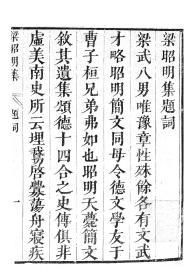 梁昭明集題詞
梁武八男唯豫章性殊餘各有文武
才略昭明簡文同母令德文學友于
曹子桓兄弟弗如也昭明天薨簡文
敘其遺集頌德十四合之史傳俱非
虛美南史所云埋鵞啓釁蕩舟寢疾
梁昭明集
題詞
一